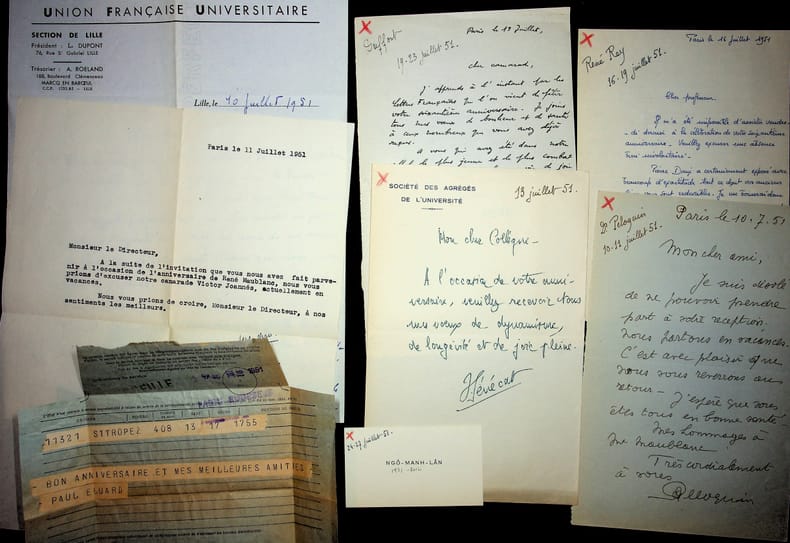 UNION FRANÇAISE UNIVERSITAIRE
SECTION DE LILLE
Président : L. DUPONT
76, Rue St Gabriel LILLE
Trésorier : A. ROELAND
188, Boulevard Clémenceau
MARCQ EN BARŒUL
Lille, le 10 juillet 1951
Paris le 11 Juillet 1951
Monsieur le Directeur,
A la suite de l'invitation que vous nous avez fait parve-
nir à l'occasion de l'anniversaire de René Maublanc, nous vous
prions d'excuser notre camarade Victor Joannès, actuellement en
vacances.
Nous vous prions de croire, Monsieur le Directeur, à nos
sentiments les meilleurs.
LILLE
11321 STTROPEZ 408 13 17 1755
BON ANNIVERSAIRE ET MES MEILLEURES AMITIES
PAUL ELUARD
Paris le 19 Juillet,
19-23 juillet 51.
Cher camarade,
J'apprends à l'instant par les
Lettres Françaises qu'on vient de fêter
votre soixantième anniversaire. Je joins
tous mes vœux de bonheur et de santé
à ceux nombreux que vous avez déjà
reçus.
A vous qui avez été dans notre
le plus jeune et le plus combat
SOCIÉTÉ DES AGRÉGÉS
DE L'UNIVERSITÉ
13 juillet 51.
Mon cher Collègue -
A l'occasion de votre anni-
versaire, veuillez recevoir tous
mes vœux de dynamisme,
de longévité et de joie pleine.
Hévécat
26-27 juillet 51.
NGÔ-MANH-LÂN
Paris le 16 juillet 1951
René Rey
16-19 juillet 51.
Cher professeur,
Il m'a été impossible d'assister vendre-
-di dernier à la célébration de votre soixantième
anniversaire. Veuillez excuser une absence
bien involontaire.
Pierre Daix a certainement exposé avec
beaucoup d'exactitude tout ce dont vos anciens
Paris le 10.7.51
D. Peloquin
10-11 juillet 51.
Mon cher ami,
Je suis désolé
de ne pouvoir prendre
part à votre réception.
Nous partons en vacances.
C'est avec plaisir que
nous vous reverrons au
retour - J'espère que vous
êtes tous en bonne santé
Mes hommages à
Me Maublanc.
Très cordialement
à vous
Peloquin